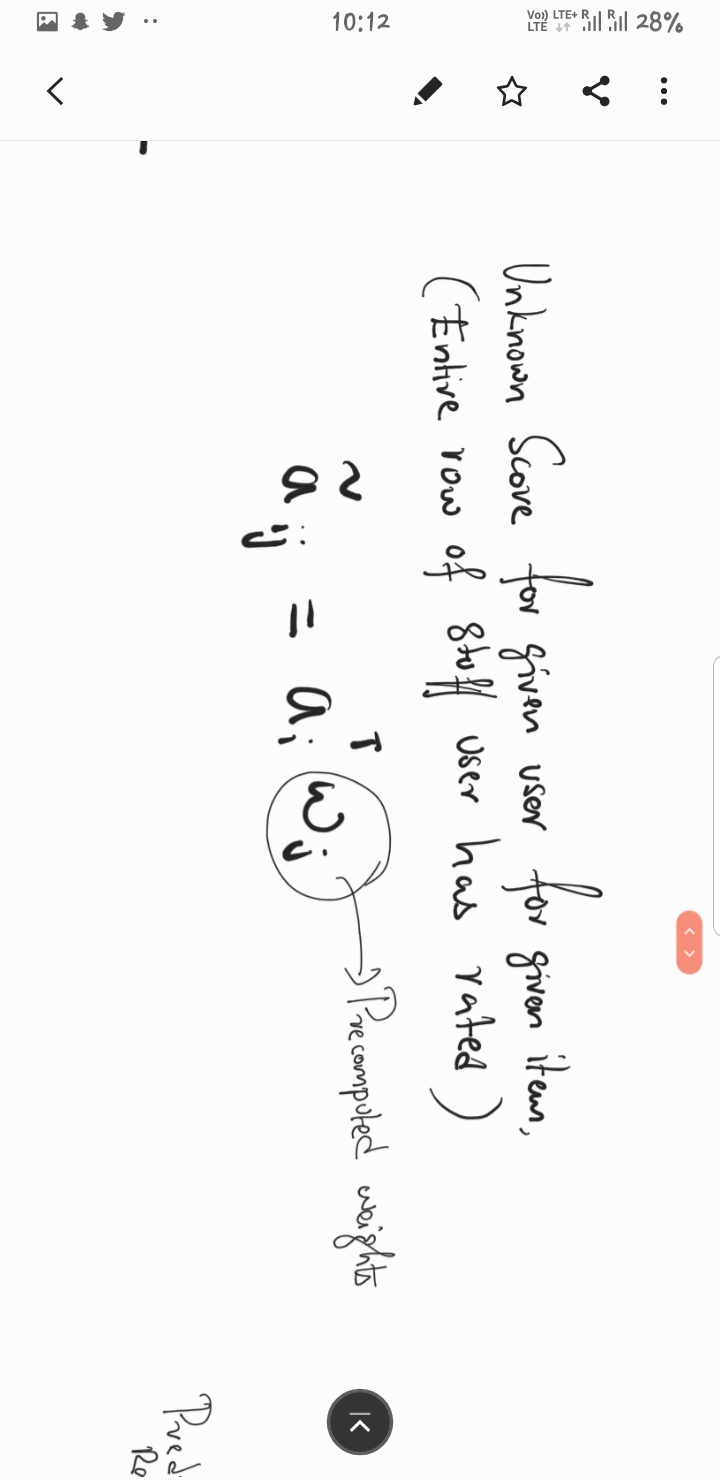 10:12
Vo)) LTE LTE+ R R 28%
Unknown Score for given user for given item,
(Entire row of stuff user has rated)
ã ij = a i ᵀ w j
Precomputed weights